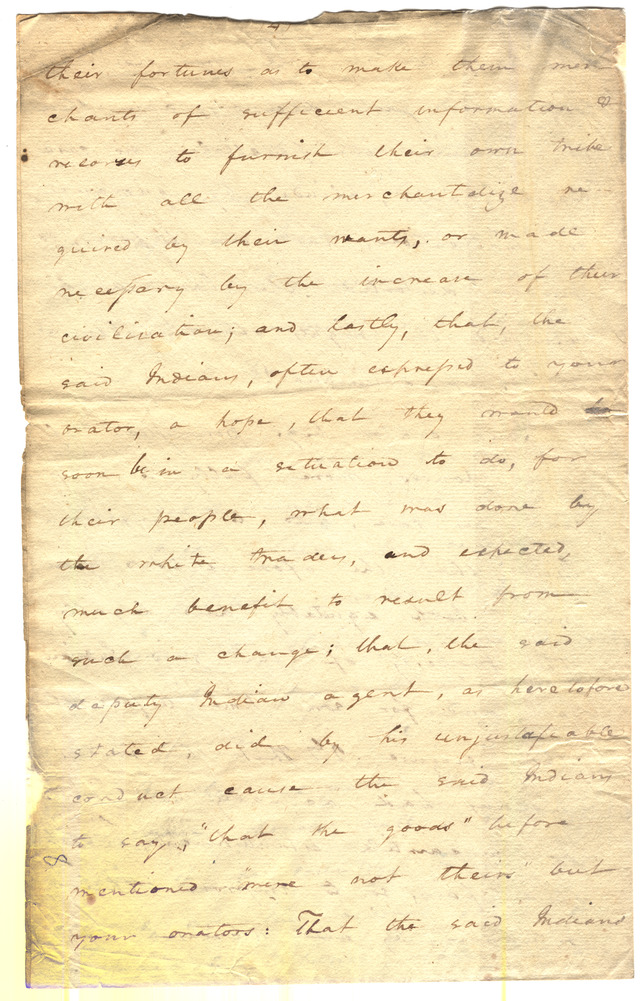 their fortunes as to make them mer
chants of sufficient information &
resorses to furnish their own tribe
with all the merchantdize re-
quired by their wants, or made
necessary by the increase of their
civilisation; and lastly, that, the
said Indians, often expressed to your
orator, a hope, that they would
soon be in a situation to do, for
their people, what was done by
the white traders, and expected,
much benefit to result from
such a change; that, the said
deputy Indian agent, as heretofore
stated, did by his unjustafiable
conduct cause the said Indians
to say, "that the goods" before
mentioned "were not theirs" but
your orators: That the said Indians